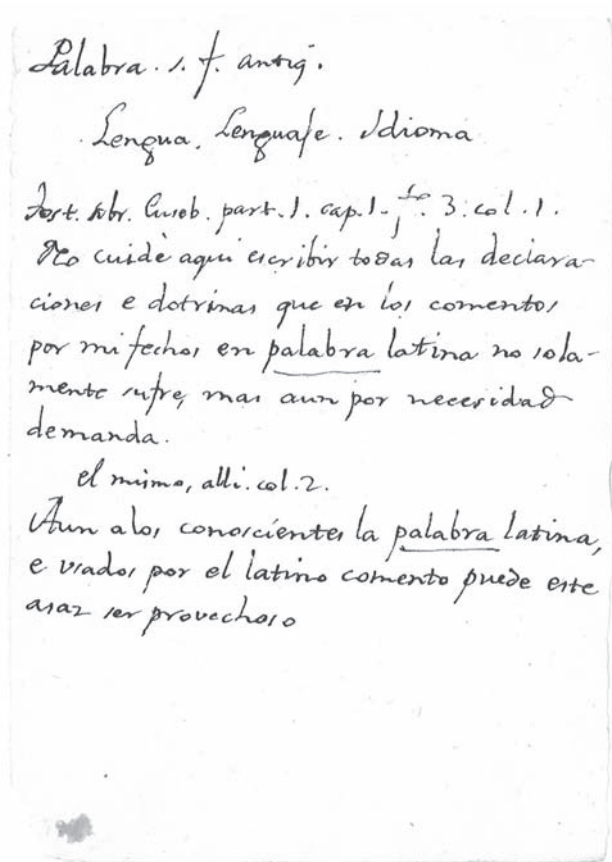 Palabra. s. f. antiq.
Lengua, Lenguaje. Idioma
Tost. sobr. Euseb. part. 1. cap. 1. fo. 3. col. 1.
No cuidè aqui escribir todas las declara-
ciones e dotrinas que en los comentos
por mi fechos en palabra latina no sola-
mente sufre, mas aun por necesidad
demanda.
el mismo, alli. col. 2.
Aun a los conoscientes la palabra latina,
e usados por el latino comento puede este
asaz ser provechoso